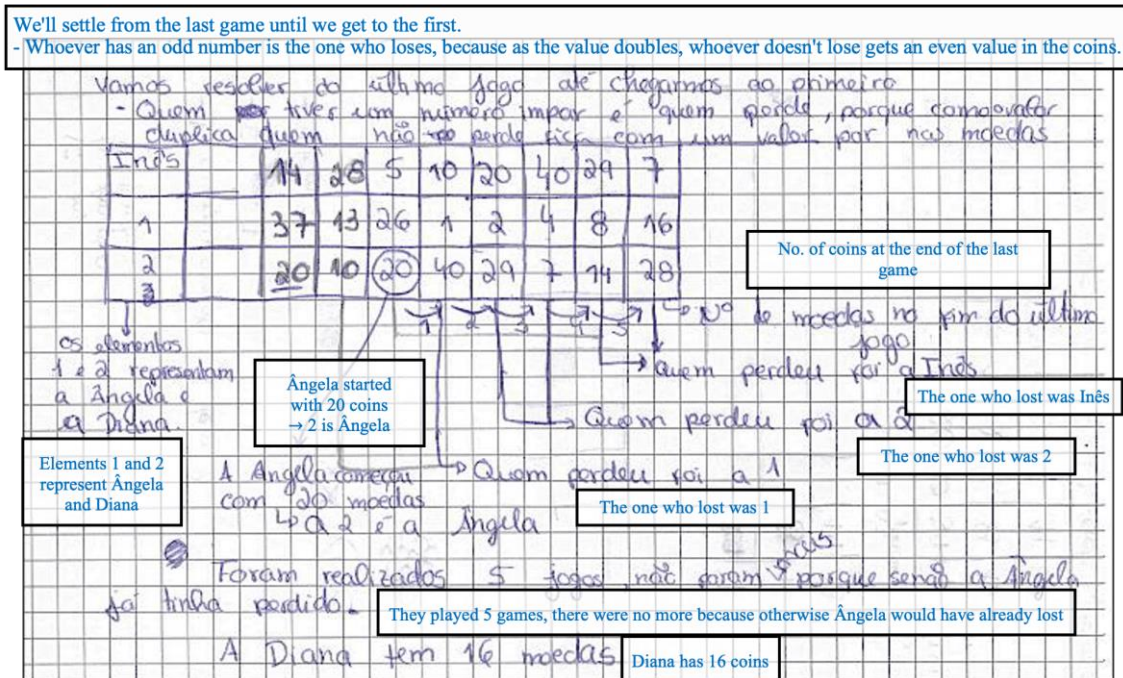 We'll settle from the last game until we get to the first.
- Whoever has an odd number is the one who loses, because as the value doubles, whoever doesn't lose gets an even value in the coins.
Vamos resolver do último jogo até chegarmos ao primeiro
- Quem tiver um número impar é quem perde, porque como o valor
duplica quem não perde fica com um valor par nas moedas
Inês 14 28 5 10 20 40 29 7
1 37 13 26 1 2 4 8 16
2 20 10 20 40 29 7 14 28
3
1 2 3 4 5
No. of coins at the end of the last
game
Nº de moedas no fim do último
jogo
os elementos
1 e 2 representam
a Ângela e
a Diana.
Ângela started
with 20 coins
→ 2 is Ângela
Quem perdeu foi a Inês
The one who lost was Inês
Quem perdeu foi a 2
The one who lost was 2
Elements 1 and 2
represent Ângela
and Diana
A Ângela começou
com 20 moedas
↳ a 2 é a Ângela
Quem perdeu foi a 1
The one who lost was 1
Foram realizados 5 jogos, não foram mais porque senão a Ângela
já tinha perdido.
They played 5 games, there were no more because otherwise Ângela would have already lost
A Diana tem 16 moedas
Diana has 16 coins